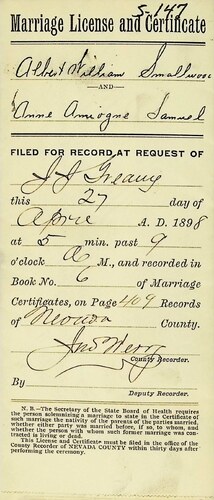 S-147
Marriage License and Certificate
Albert William Smallwood
—AND—
Anne Amiogne Samuel
FILED FOR RECORD AT REQUEST OF
J J Greany
this 27 day of
April A. D. 1898
at 5 min. past 9
o'clock A M., and recorded in
Book No. 6 of Marriage
Certificates, on Page 409 Records
of Nevada County.
Jno Werry
County Recorder.
By
Deputy Recorder.
N. B.—The Secretary of the State Board of Health requires
the person solemnizing a marriage to state in the Certificate of
such marriage the nativity of the parents of the parties married,
whether either party was married before, if so, to whom, and
whether the person with whom such former marriage was con-
tracted is living or dead.
This License and Certificate must be filed in the office of the
County Recorder of NEVADA COUNTY within thirty days after
performing the ceremony.